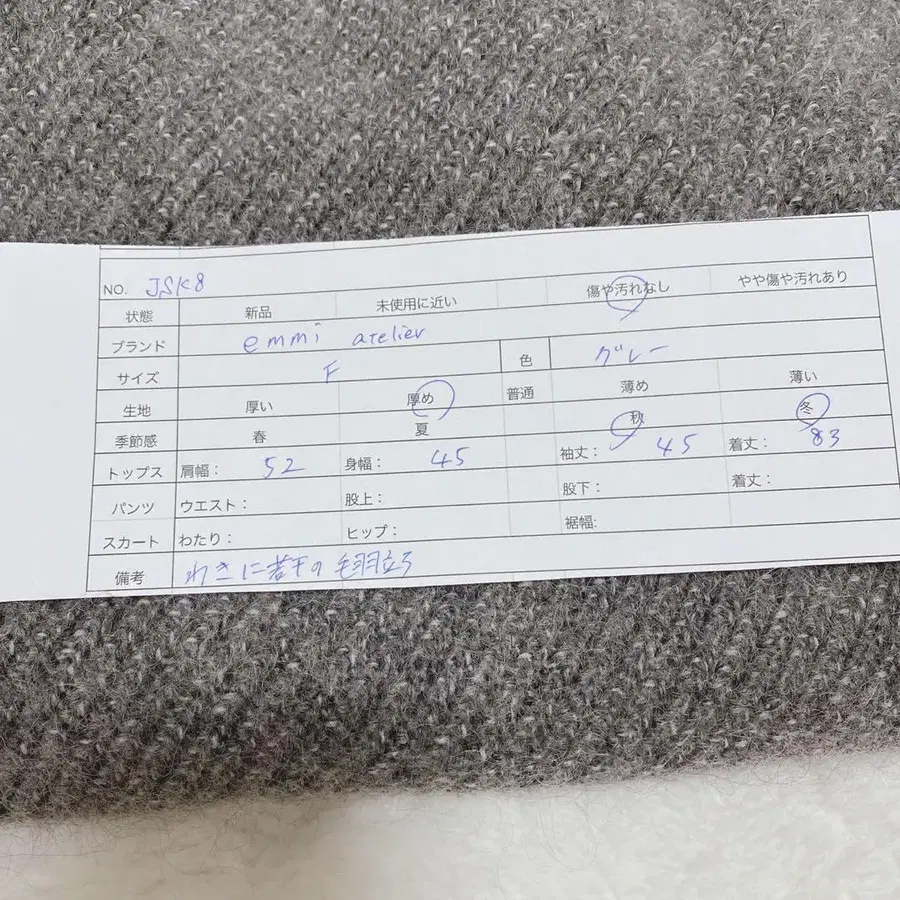 NO. JSK8
状態 新品 未使用に近い 傷や汚れなし やや傷や汚れあり
ブランド emmi atelier
サイズ F 色 グレー
生地 厚い 厚め 普通 薄め 薄い
季節感 春 夏 秋 冬
トップス 肩幅: 52 身幅: 45 袖丈: 45 着丈: 83
パンツ ウエスト: 股上: 股下: 着丈:
スカート わたり: ヒップ: 裾幅:
備考 わきに若干の毛羽立ち